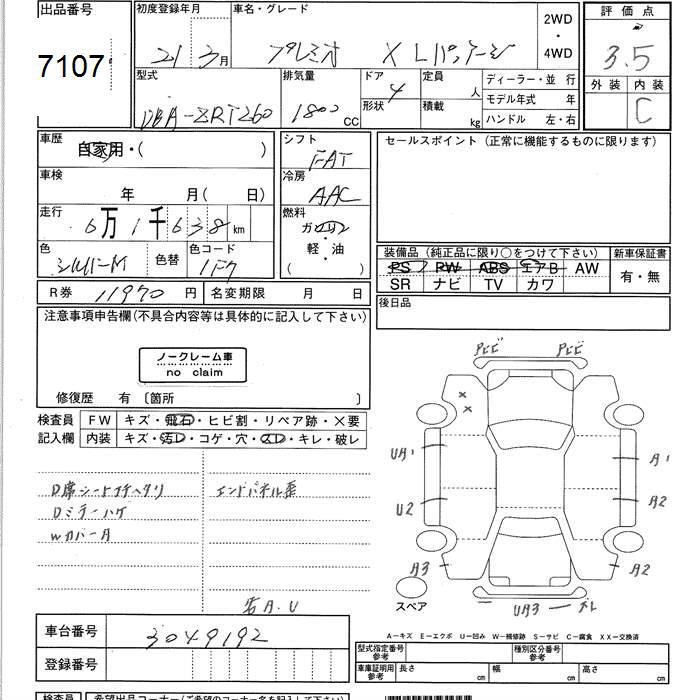 出品番号 初度登録年月 車名・グレード 2WD・4WD 評価点
7107 21 3月 プレミオ X Lパッケージ 3.5
型式 排気量 ドア 4 定員 人 ディーラー・並行 外装 内装
DBA-ZRT260 1800 CC 形状 積載 kg モデル年式 年 C
ハンドル 左・右
車歴 自家用・( ) シフト FAT セールスポイント (正常に機能するものに限ります)
車検 年 月( 日) 冷房 AAC
走行 6万1千638 km 燃料 ガソリン
軽・油
( )
色 シルバーM 色替 色コード 1F7
装備品 (純正品に限り○をつけて下さい) 新車保証書
PS PW ABS エアB AW 有・無
SR ナビ TV カワ
R券 11970 円 名変期限 月 日 後日品
注意事項申告欄(不具合内容等は具体的に記入して下さい)
ノークレーム車
no claim
修復歴 有 〔箇所 〕
検査員 FW キズ・飛石・ヒビ割・リペア跡・×要
記入欄 内装 キズ・汚レ・コゲ・穴・スレ・キレ・破レ
D席シート ヘタリ エンドパネル歪
Dミラーハゲ
Wカバー月
若A.U
アビビ アビビ
UA1 A1
U2 A2
A3 A2
スペア UA3 ズレ
A-キズ E-エクボ U-凹み W-補修跡 S-サビ C-腐食 XX-交換済
車台番号 3049192 型式指定番号 参考 種別区分番号 参考
登録番号 車庫証明用 参考 長さ cm 幅 cm 高さ cm
検査員 希望出品コーナー(ご希望のコーナー名を記入して下さい)